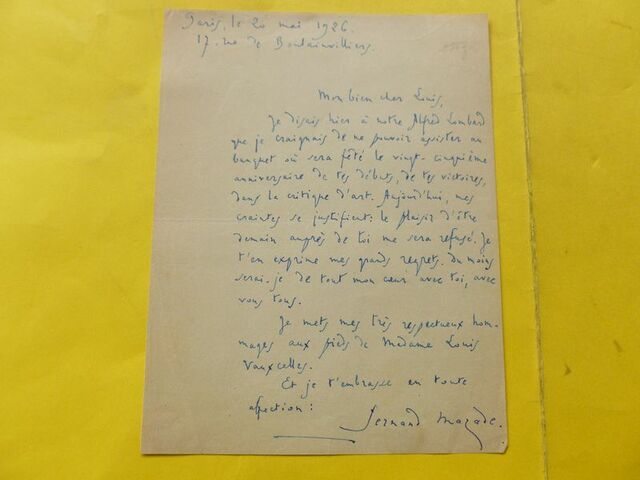 Paris, le 20 mai 1926.
17. rue de Boulainvilliers.
Mon bien cher Louis,
Je disais hier à notre Alfred Lombard
que je craignais de ne pouvoir assister au
banquet où sera fêté le vingt-cinquième
anniversaire de tes débuts, de tes victoires,
dans la critique d'art. Aujourd'hui, mes
craintes se justifient: le plaisir d'être
demain auprès de toi me sera refusé. Je
t'en exprime mes grands regrets. Du moins
serai-je de tout mon cœur avec toi, avec
vous tous.
Je mets mes très respectueux hom-
mages aux pieds de Madame Louis
Vauxcelles.
Et je t'embrasse en toute
affection:
Fernand Mazade.